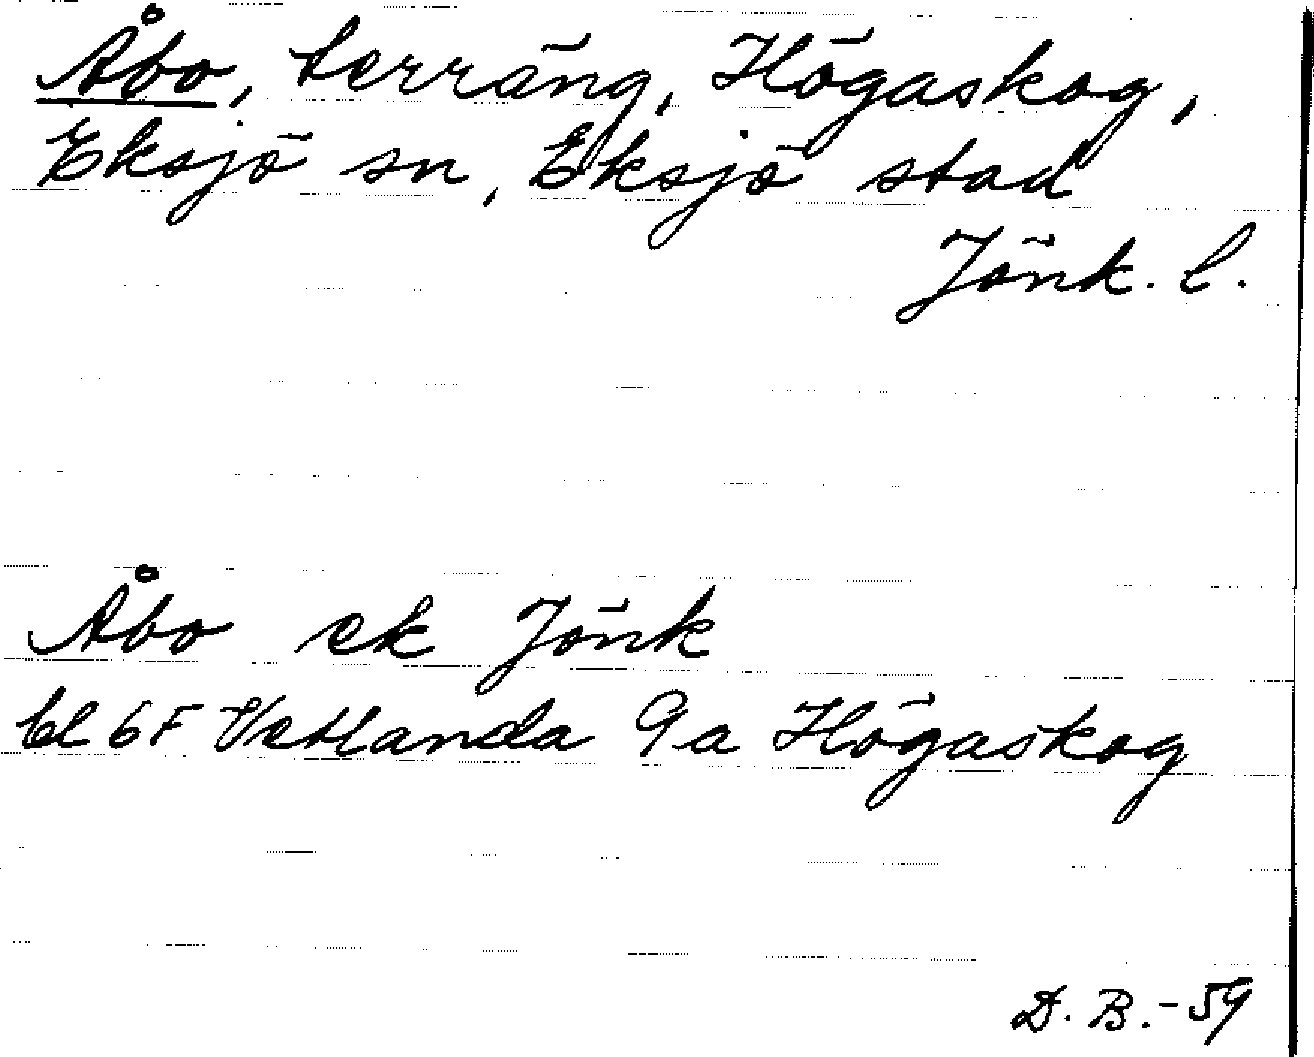 Åbo, terräng, Högaskog,
Eksjö sn, Eksjö stad
Jönk. l.
Åbo ek Jönk
bl 6F Vetlanda 9a Högaskog
D. B. -59